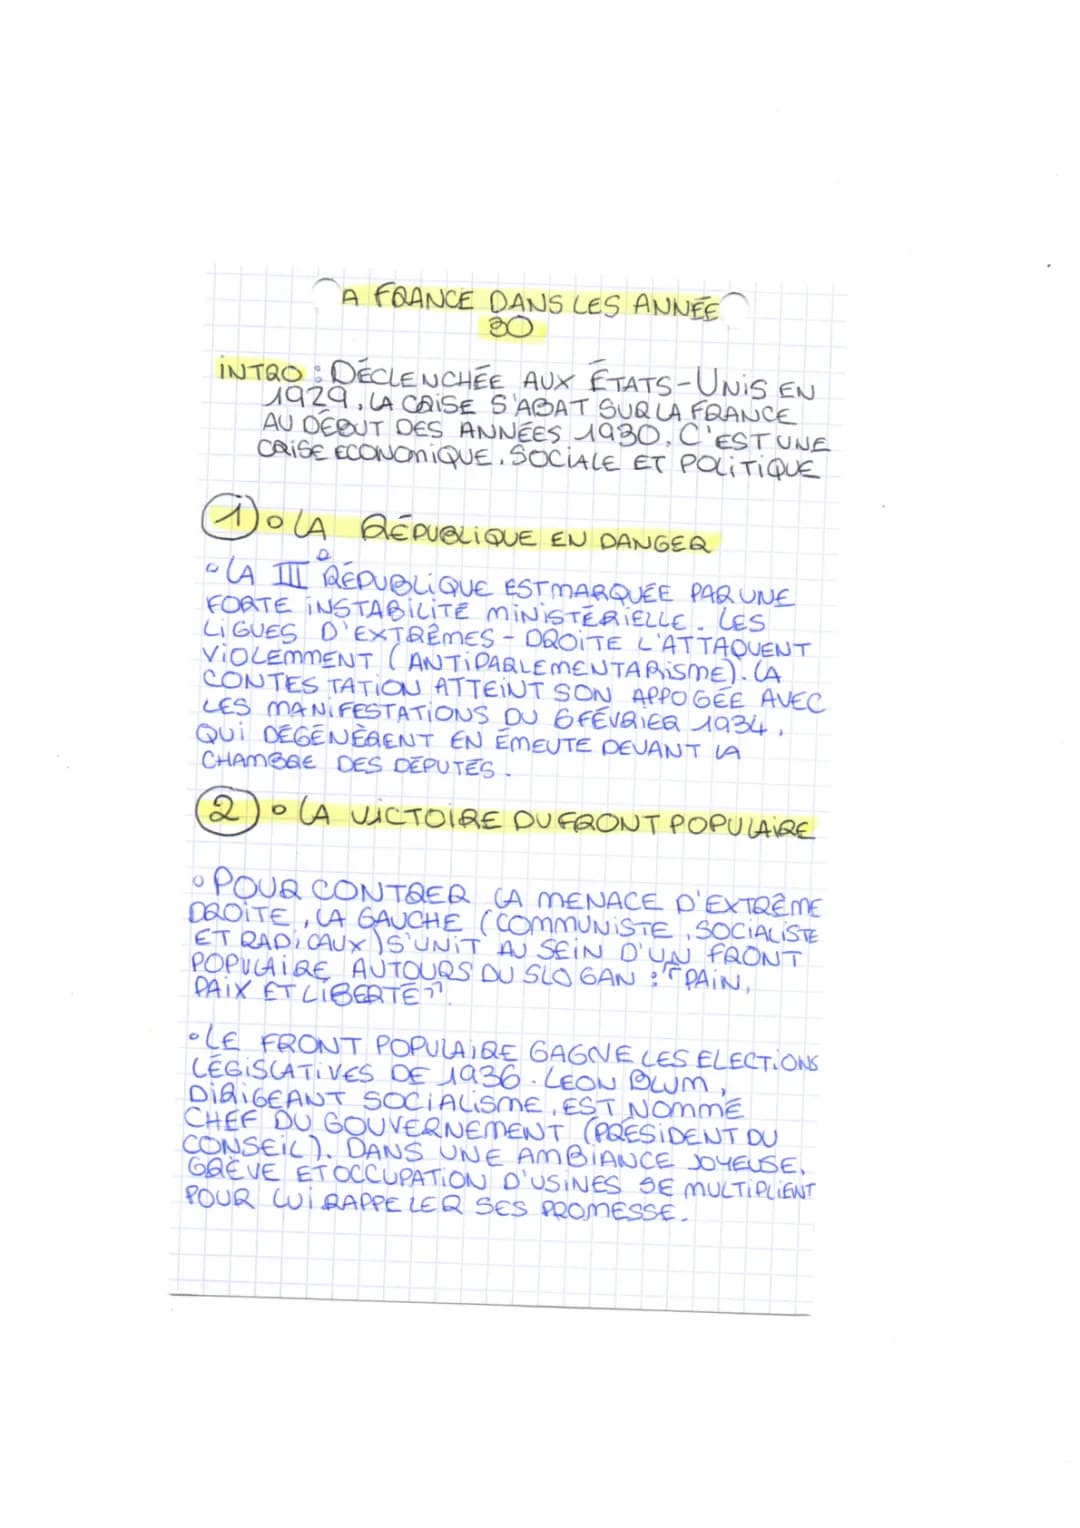 A FRANCE DANS LES ANNÉE
30
INTRO : DÉCLENCHÉE AUX ÉTATS-UNIS EN
1929, LA CRISE S'ABAT SUR LA FRANCE
AU DÉBUT DES ANNÉES 1930. C'EST UNE
CRISE ECONOMIQUE, SOCIALE ET POLITIQUE
1) o LA RÉPUBLIQUE EN DANGER
• LA IIIe RÉPUBLIQUE EST MARQUÉE PAR UNE
FORTE INSTABILITÉ MINISTÉRIELLE. LES
LIGUES D'EXTRÊMES-DROITE L'ATTAQUENT
VIOLEMMENT (ANTIPARLEMENTARISME). LA
CONTESTATION ATTEINT SON APPOGÉE AVEC
LES MANIFESTATIONS DU 6 FÉVRIER 1934,
QUI DÉGÉNÈRENT EN ÉMEUTE DEVANT LA
CHAMBRE DES DÉPUTÉS.
2) o LA VICTOIRE DU FRONT POPULAIRE
• POUR CONTRER LA MENACE D'EXTRÊME
DROITE, LA GAUCHE (COMMUNISTE, SOCIALISTE
ET RADICAUX) S'UNIT AU SEIN D'UN FRONT
POPULAIRE AUTOURS DU SLOGAN : "PAIN,
PAIX ET LIBERTÉ".
• LE FRONT POPULAIRE GAGNE LES ELECTIONS
LÉGISLATIVES DE 1936. LEON BLUM,
DIRIGEANT SOCIALISME, EST NOMMÉ
CHEF DU GOUVERNEMENT (PRÉSIDENT DU
CONSEIL). DANS UNE AMBIANCE JOYEUSE,
GRÈVE ET OCCUPATION D'USINES SE MULTIPLIENT
POUR LUI RAPPELER SES PROMESSE.